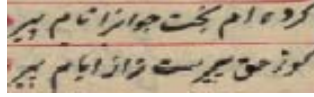 کرده ام بخت جوانرا نام پیر
کو ز حق پیرست نز ایام پیر